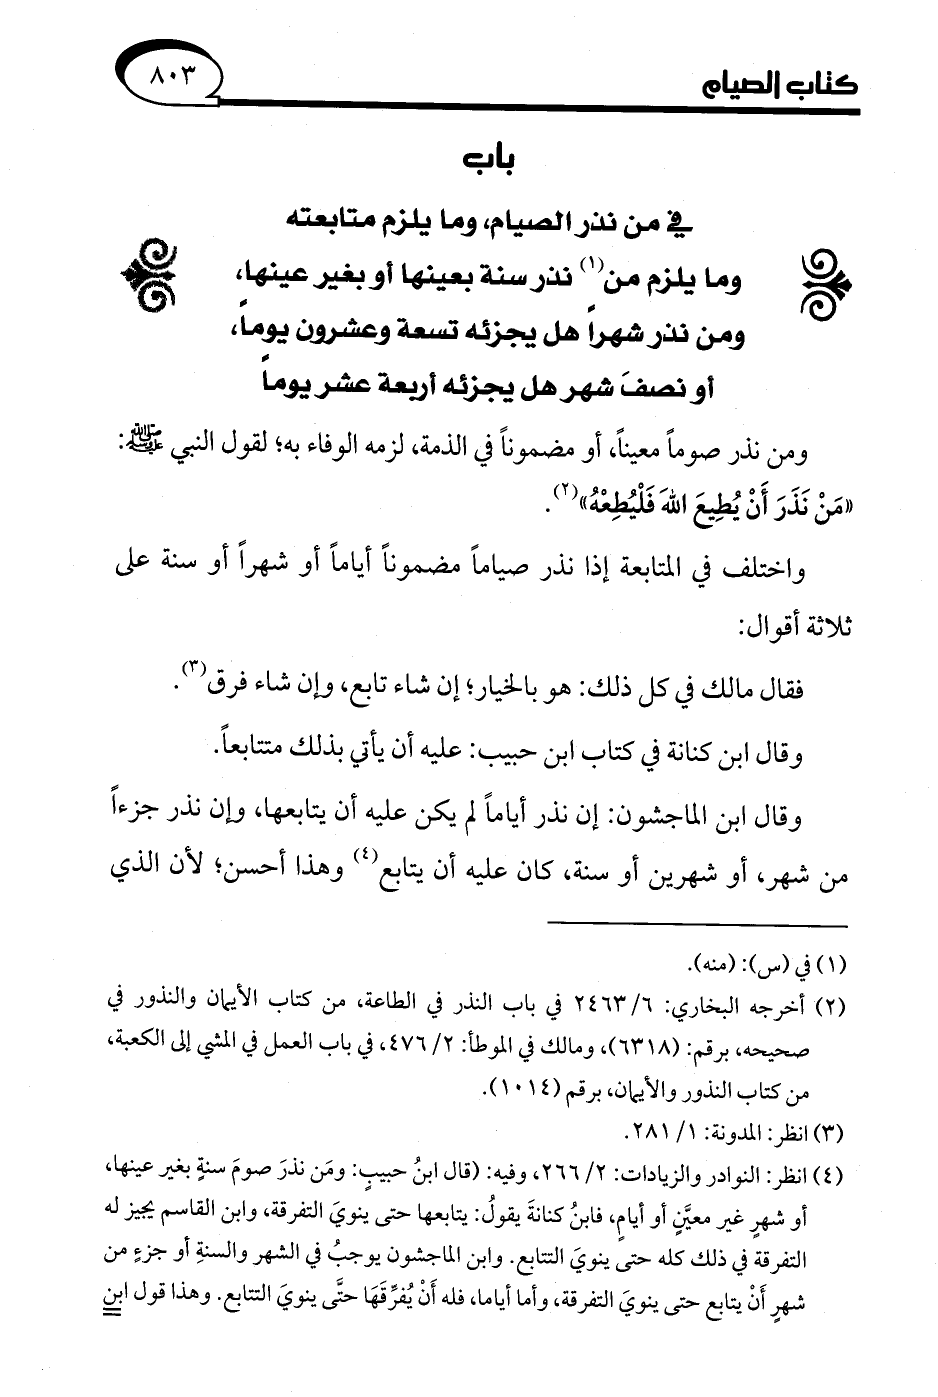 كتاب الصيام
٨٠٣
باب
في من نذر الصيام، وما يلزم متابعته
وما يلزم من(١) نذر سنة بعينها أو بغير عينها،
ومن نذر شهراً هل يجزئه تسعة وعشرون يوماً،
أو نصفَ شهر هل يجزئه أربعة عشر يوماً
ومن نذر صوماً معيناً، أو مضموناً في الذمة، لزمه الوفاء به؛ لقول النبي ﷺ:
«مَنْ نَذَرَ أَنْ يُطِيعَ اللهَ فَلْيُطِعْهُ»(٢).
واختلف في المتابعة إذا نذر صياماً مضموناً أياماً أو شهراً أو سنة على
ثلاثة أقوال:
فقال مالك في كل ذلك: هو بالخيار؛ إن شاء تابع، وإن شاء فرق(٣).
وقال ابن كنانة في كتاب ابن حبيب: عليه أن يأتي بذلك متتابعاً.
وقال ابن الماجشون: إن نذر أياماً لم يكن عليه أن يتابعها، وإن نذر جزءاً
من شهر، أو شهرين أو سنة، كان عليه أن يتابع(٤) وهذا أحسن؛ لأن الذي
(١) في (س): (منه).
(٢) أخرجه البخاري: ٦/ ٢٤٦٣ في باب النذر في الطاعة، من كتاب الأيمان والنذور في
صحيحه، برقم: (٦٣١٨)، ومالك في الموطأ: ٢/ ٤٧٦، في باب العمل في المشي إلى الكعبة،
من كتاب النذور والأيمان، برقم (١٠١٤).
(٣) انظر: المدونة: ١/ ٢٨١.
(٤) انظر: النوادر والزيادات: ٢/ ٢٦٦، وفيه: (قال ابنُ حبيبٍ: ومَن نذرَ صومَ سنةٍ بغير عينها،
أو شهرٍ غير معيَّنٍ أو أيامٍ، فابنُ كنانةَ يقولُ: يتابعها حتى ينويَ التفرقة، وابن القاسم يجيز له
التفرقة في ذلك كله حتى ينويَ التتابع. وابن الماجشون يوجبُ في الشهر والسنةِ أو جزءٍ من
شهرٍ أَنْ يتابع حتى ينويَ التفرقة، وأما أياما، فله أَنْ يُفرِّقَهَا حتَّى ينويَ التتابع. وهذا قول ابن